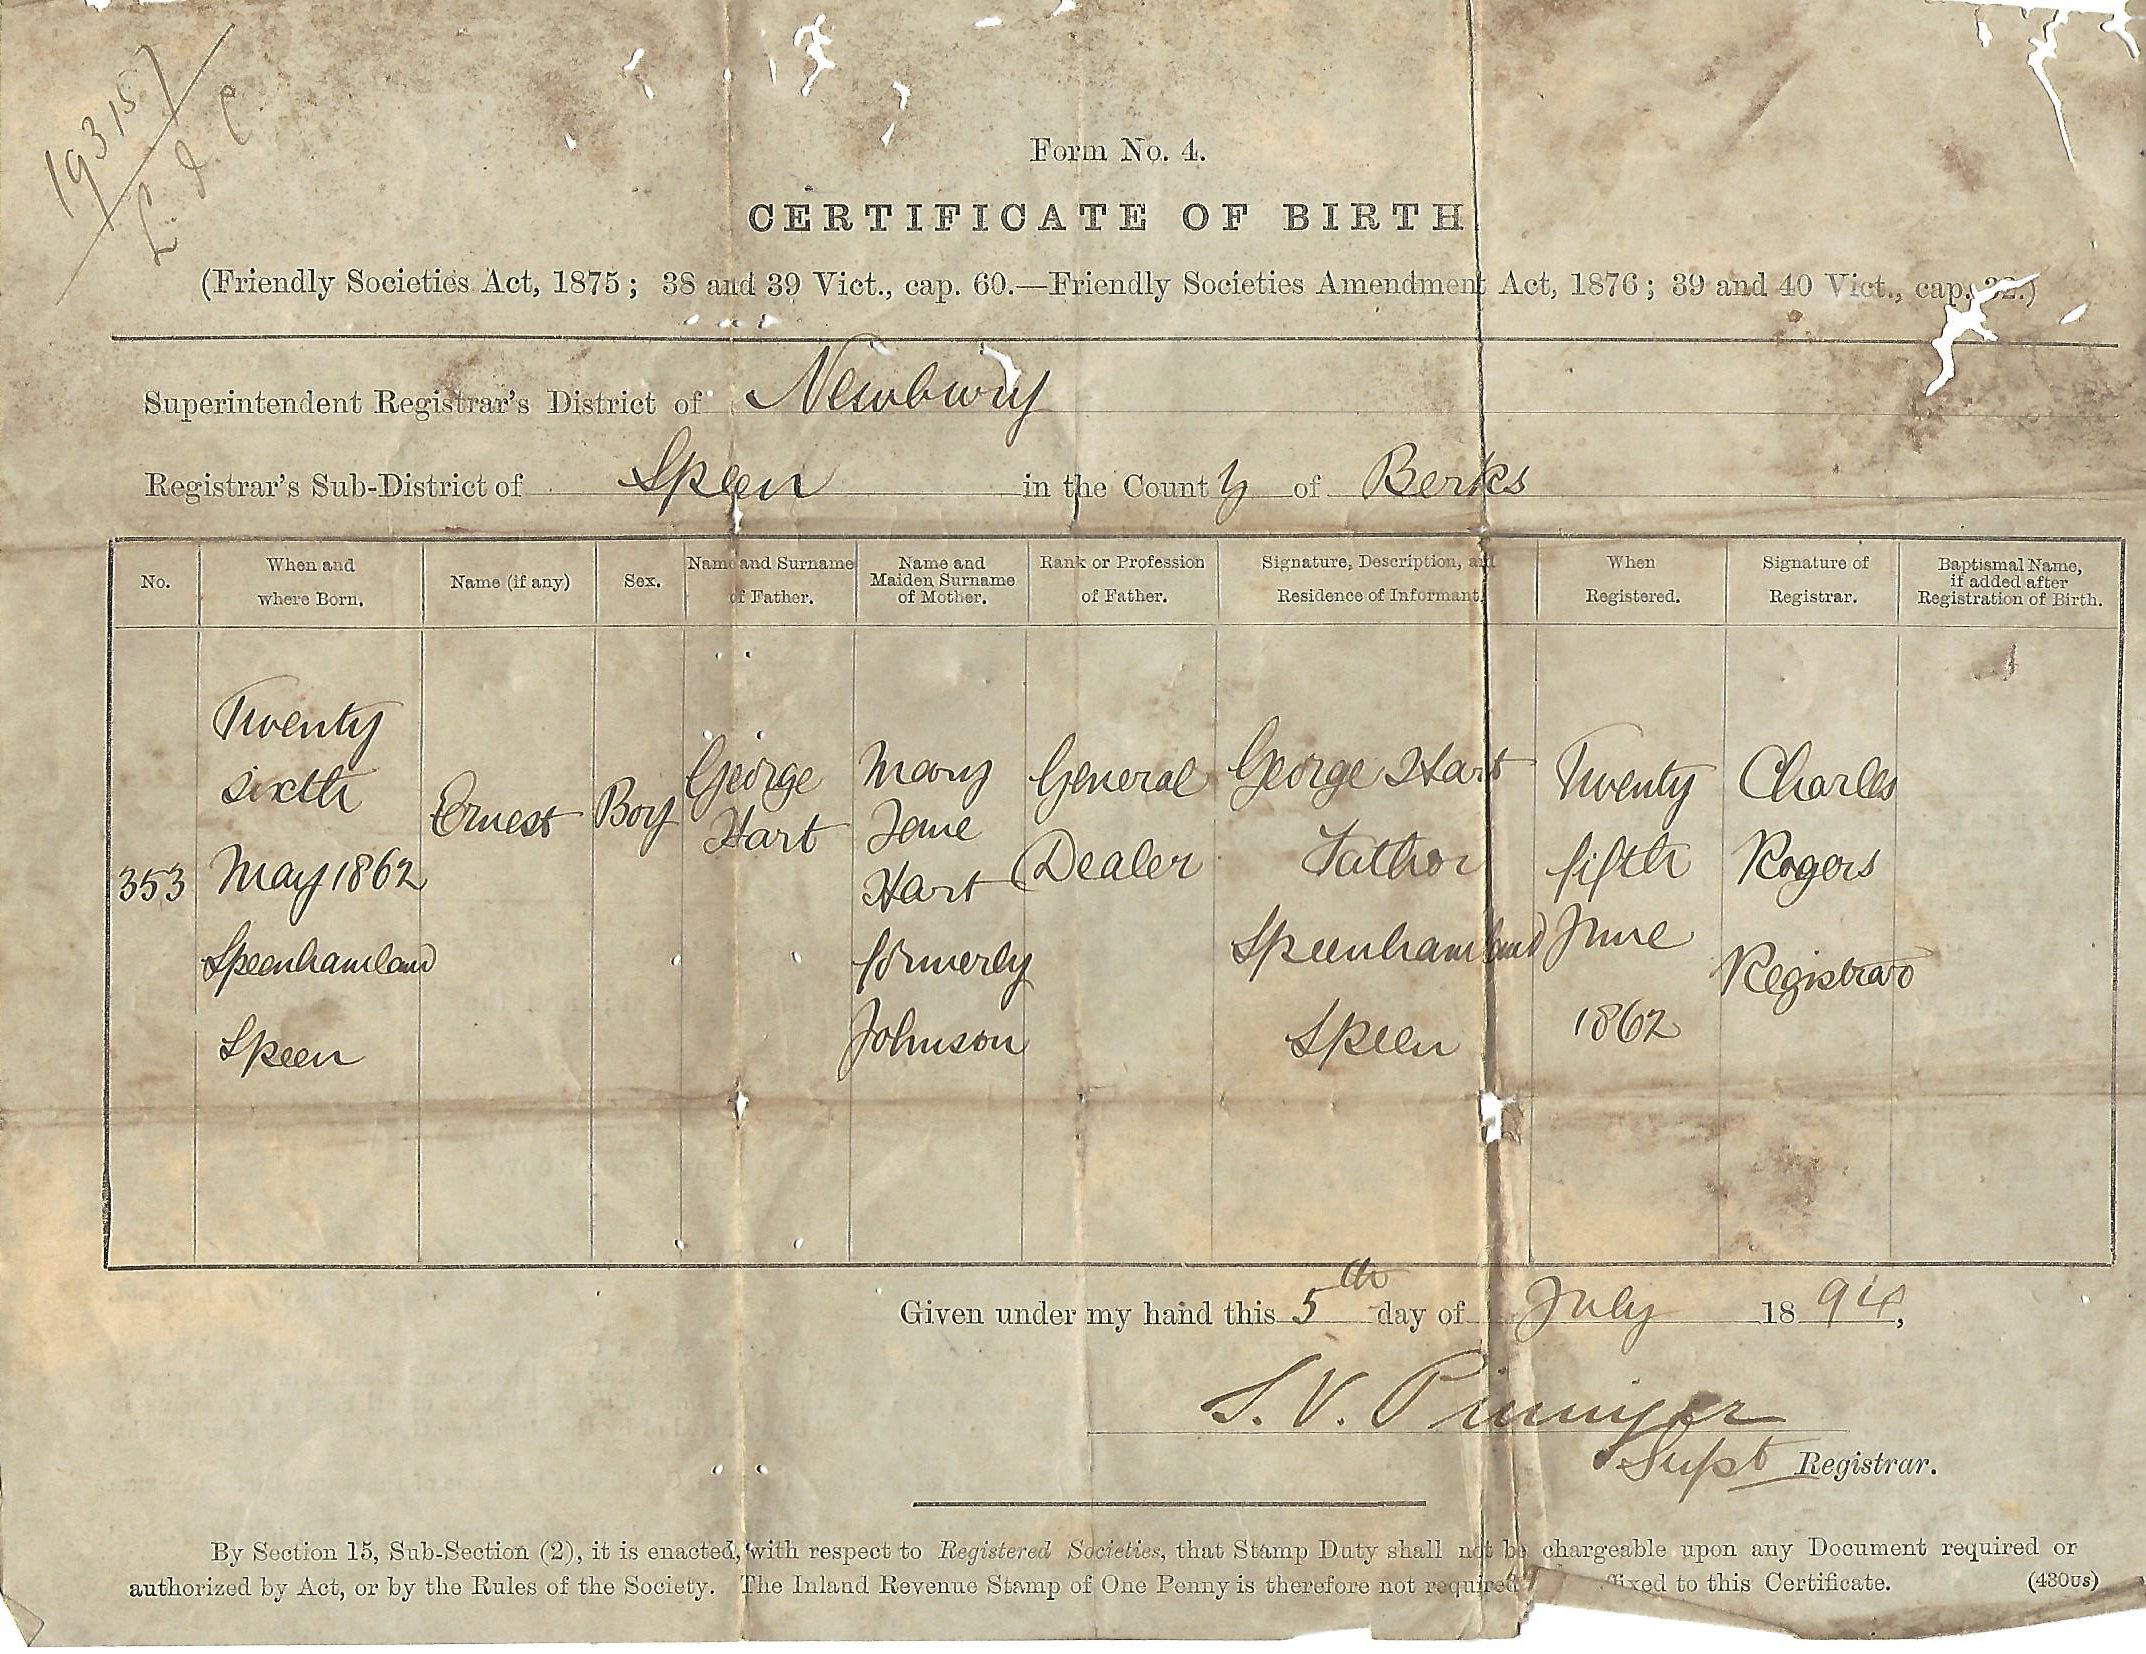 19315
L & C
Form No. 4.
CERTIFICATE OF BIRTH
(Friendly Societies Act, 1875; 38 and 39 Vict., cap. 60.—Friendly Societies Amendment Act, 1876; 39 and 40 Vict., cap. 32.)
Superintendent Registrar's District of Newbury
Registrar's Sub-District of Speen in the County of Berks
No.
When and
where Born.
Name (if any)
Sex.
Name and Surname
of Father.
Name and
Maiden Surname
of Mother.
Rank or Profession
of Father.
Signature, Description, and
Residence of Informant.
When
Registered.
Signature of
Registrar.
Baptismal Name,
if added after
Registration of Birth.
353
Twenty
sixth
May 1862
Speenhamland
Speen
Ernest
Boy
George
Hart
Mary
Jane
Hart
formerly
Johnson
General
Dealer
George Hart
Father
Speenhamland
Speen
Twenty
fifth
June
1862
Charles
Rogers
Registrar
Given under my hand this 5th day of July 1894,
S. V. Pinniger
Supt Registrar.
By Section 15, Sub-Section (2), it is enacted, with respect to Registered Societies, that Stamp Duty shall not be chargeable upon any Document required or
authorized by Act, or by the Rules of the Society. The Inland Revenue Stamp of One Penny is therefore not required ffixed to this Certificate. (430us)